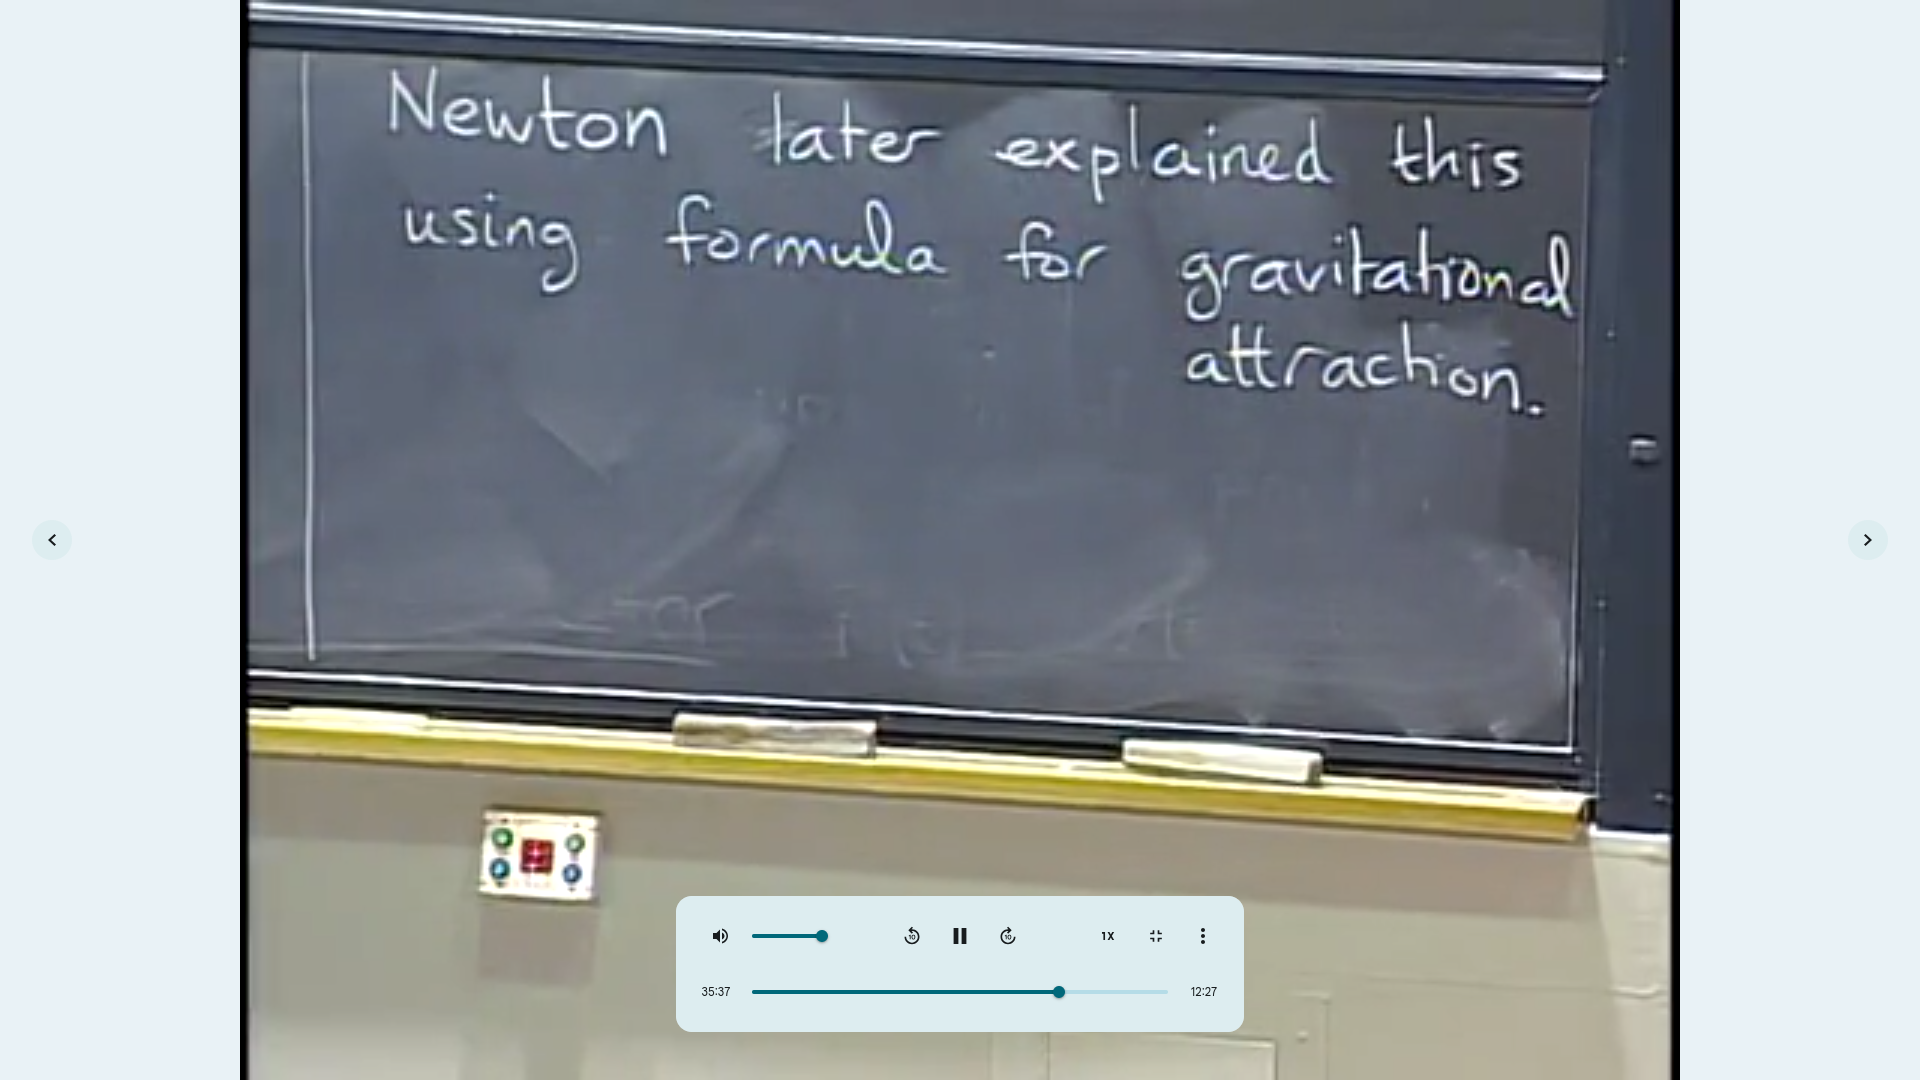 Newton later explained this
using formula for gravitational
attraction.
1X
35:37
12:27